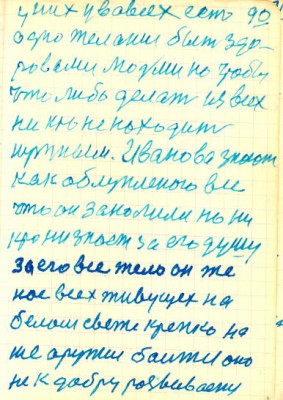 у них и во всех есть 90
одно желание быть здо
ровыми людми но чтобы
что либо делат из всех
ни кто не находит
нужным. Иванова знают
как облупленого все
что он заколили но ни
кто ни знает за его душу
за его все тело он же
ное всех живущех на
белом свете крепко на
ше оружии боитжи оно
не к добру розвиваеми